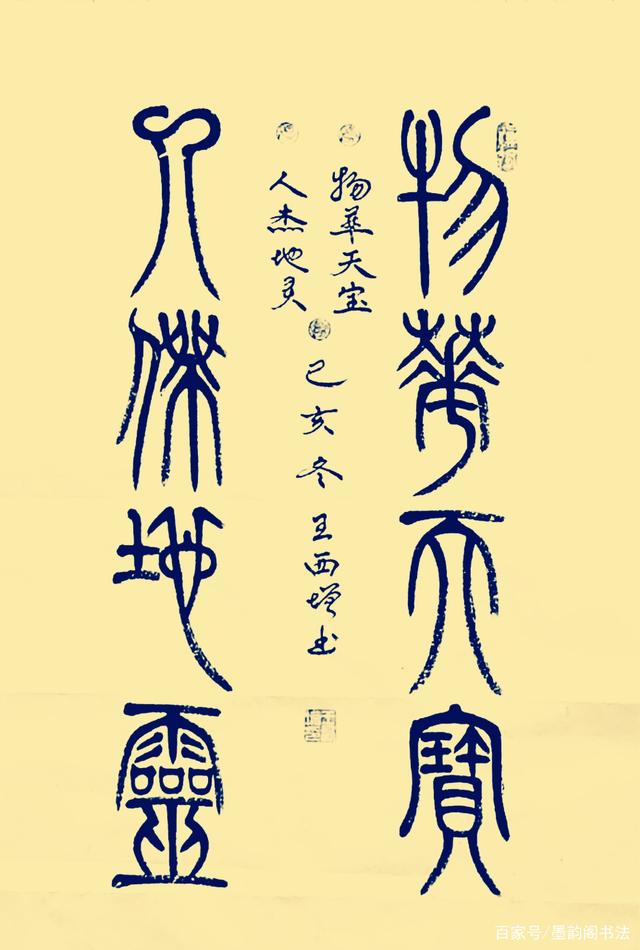 物華天寶
人傑地靈
物華天宝
人杰地灵
己亥冬王西增书
百家号/墨韵阁书法